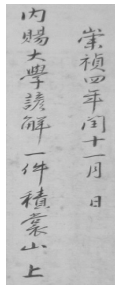 崇禎四年閏十一月 日
内賜大學諺解一件積裳山上